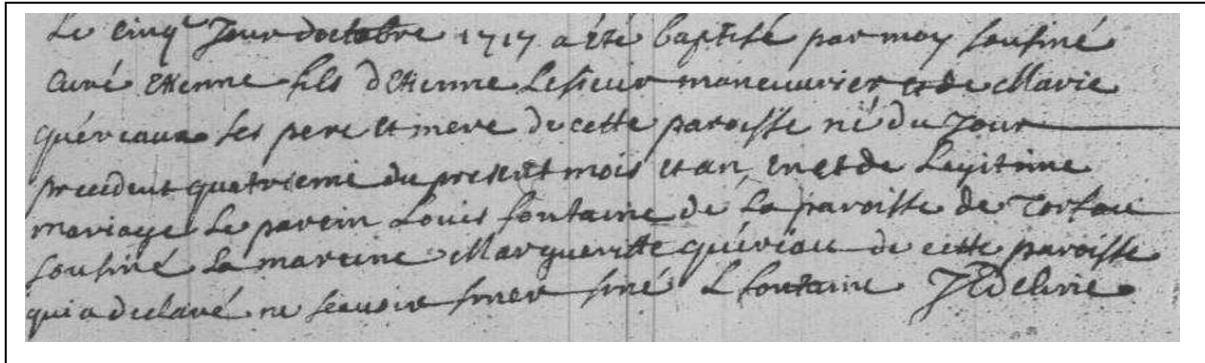 Le cinqe Jour doctobre 1717 a été baptisé par moy sousiné
Curé Etienne fils d'Etienne Lesieur maneuvrier et de Marie
quéreaux ses pere et mere de cette paroisse né du Jour
precedent quatrieme du present mois et an, en et de Legitime
mariage Le parein Louis fontaine de La paroisse de Torfou
sousiné La mareine Margueritte quéreau de cette paroisse
qui a declaré ne scauoir siner siné L fontaine J Edeline